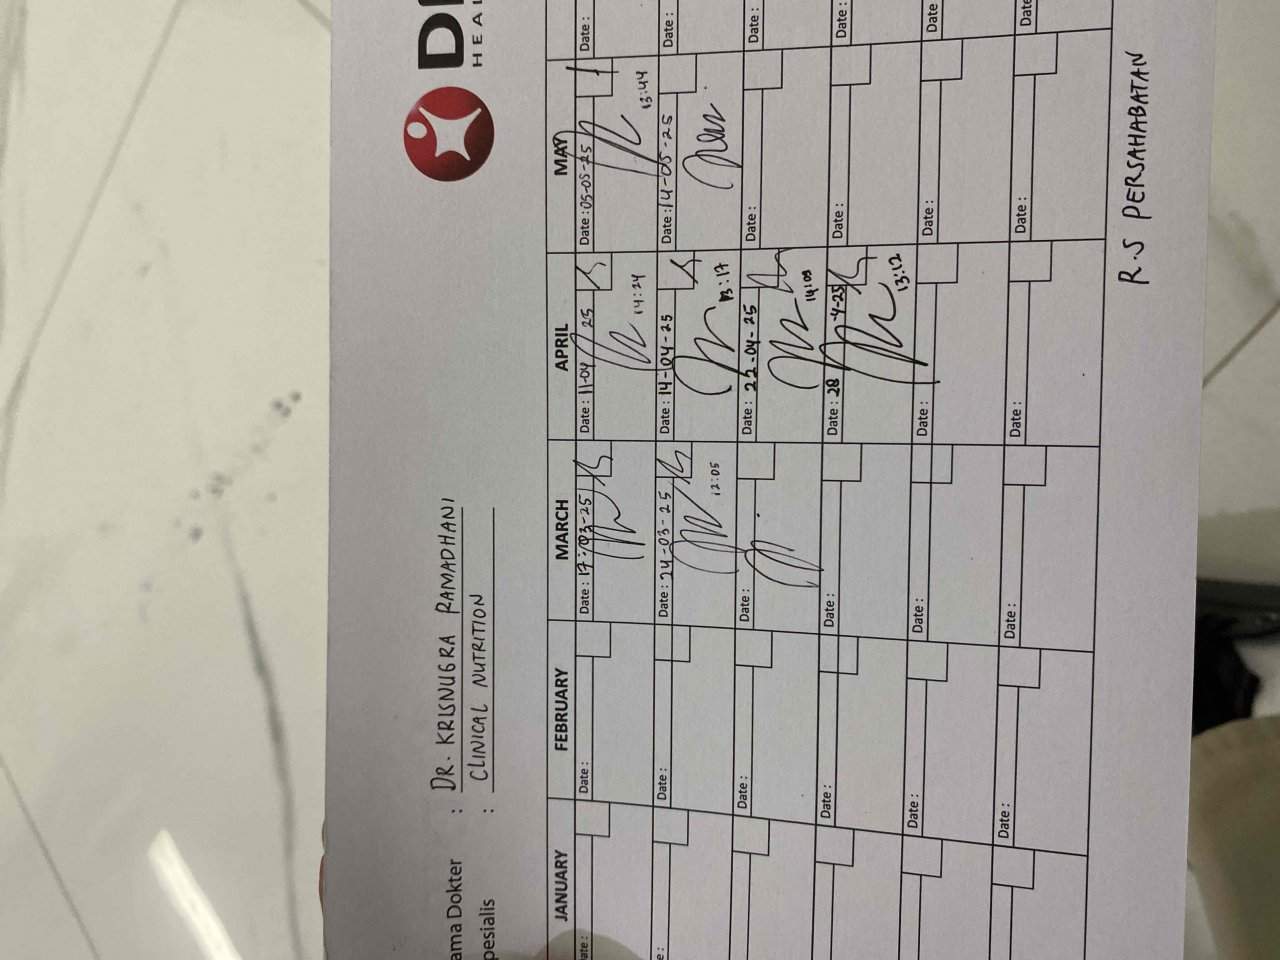 DI
HEAL
ama Dokter : DR. KRISNUGRA RAMADHANI
pesialis : CLINICAL NUTRITION
JANUARY FEBRUARY MARCH APRIL MAY
ate: Date: Date: 17-03-25 Date: 11-04 25 Date: 05-05-25 Date:
14:24 13:44
e: Date: Date: 24-03-25 Date: 14-04-25 Date: 14-05-25 Date:
12:05 13:17
Date: Date: Date: 22-04-25 Date: Date:
14:09
Date: Date: Date: 28-4-25 Date: Date:
13:12
Date: Date: Date: Date: Date
Date: Date: Date: Date: Date
R.S PERSAHABATAN